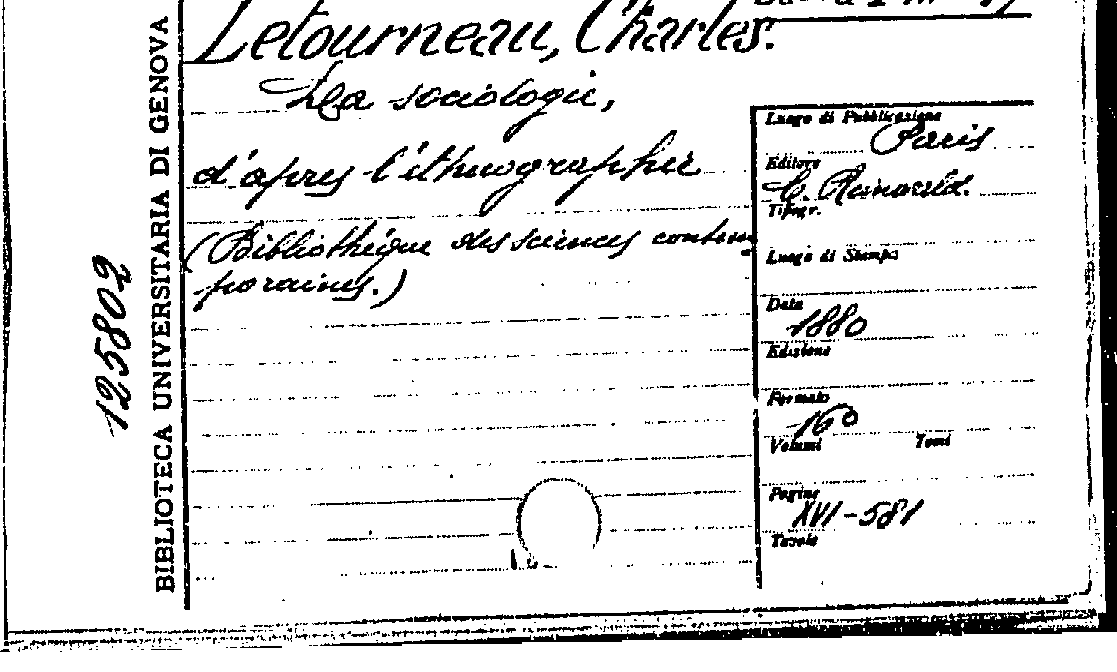 Letourneau, Charles.
La sociologie,
d'après l'éthnographie
(Bibliothéque des sciences contem
poraines.)
Luogo di Pubblicazione
Paris
Editore
C. Reinwald.
Tipogr.
Luogo di Stampa
Data
1880
Edizione
Formato
16°
Volumi Tomi
Pagine
XVI-581
Tavole
BIBLIOTECA UNIVERSITARIA DI GENOVA
125802